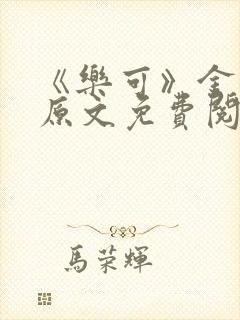 《樂可》全
原文免費閱
馬荣輝